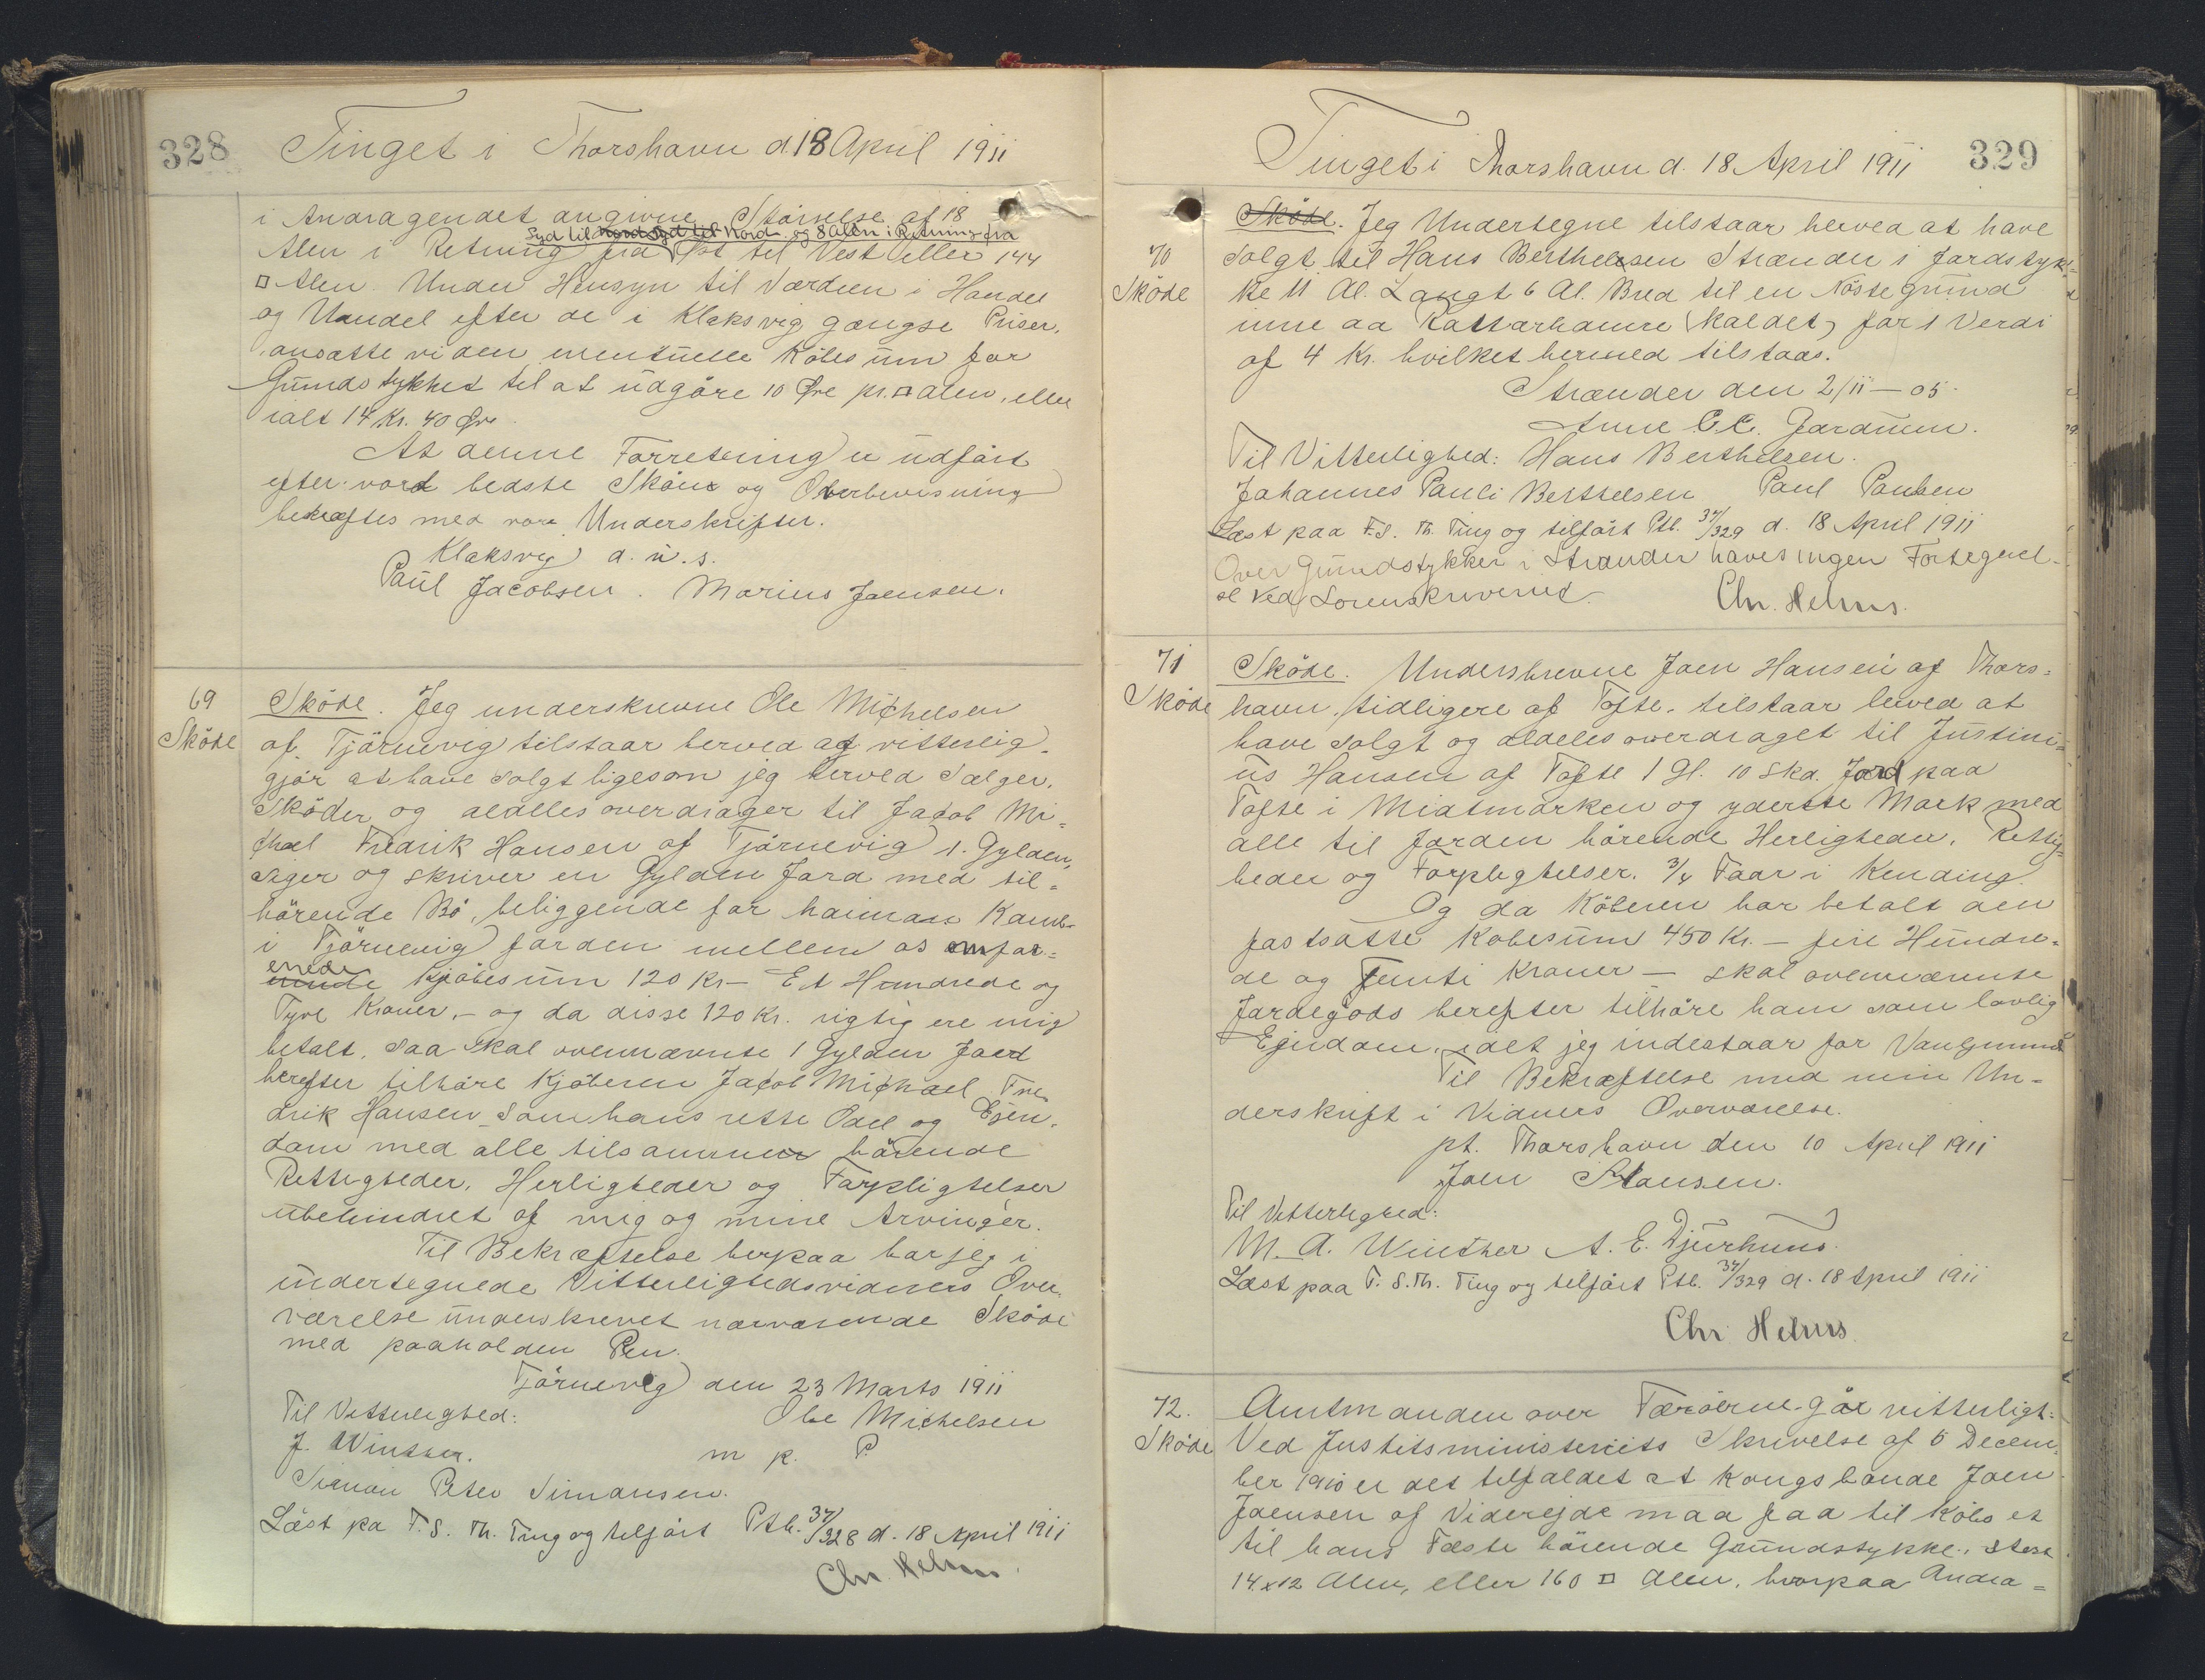 328
Tinget i Thorshavn d. 18 April 1911
i Andragendet angivne Störrelse af 18
Syd til Nord Syd til Nord. og 8 Alen i Retning fra
Alen i Retning fra Øst til Vest eller 144
□ Alen. Under Hensyn til Værdien i Handel
og Vandel efter de i Klaksvig gængse Priser,
ansatte vi den eventuelle Købesum for
Grundstykket til at udgöre 10 Øre pr. □ Alen, eller
ialt 14 Kr. 40 Øre.
At denne Forretning er udfört
efter vort bedste Skön og Overbevisning
bekræftes med vore Underskrifter.
Klaksvig d. u. s.
Paul Jacobsen. Marius Joensen.
69
Sköde
Sköde. Jeg underskrevne Ole Michelsen
af Tjörnevig tilstaar herved og vitterlig-
gjör at have solgt ligesom jeg herved Sælger,
Sköder og aldelles overdrager til Jacob Mi-
chael Fredrik Hansen af Tjörnevig 1. Gylden,
siger og skriver en Gylden Jord med til-
hörende Bö, beliggende for haiman Kamb-
i Tjörnevig for den mellem os omfor-
enede
Kjöbesum 120 Kr - Et Hundrede og
Tyve Kroner, - og da disse 120 Kr. rigtig ere mig
betalt, saa skal ovennævnte 1 Gylden Jord
herefter tilhöre Kjöberen Jacob Michael Fre-
drik Hansen som hans rette Odel og Ejen-
dom med alle tilsammen hörende
Rettigheder, Herligheder og Forpligtelser
ubehindret af mig og mine Arvinger.
Til Bekræftelse herpaa har jeg i
undertegnede Vitterlighedsvidners Over-
værelse underskrevet nærværende Sköde
med paaholden Pen.
Tjörnevig den 23 Marts 1911
Til Vitterlighed: Ole Michelsen
J. Winther. m p. P.
Simon Peter Simonsen.
Læst pa F. S. Th. Ting og tilfört Ptb. 37/328 d. 18 April 1911
Chr. Helms.
329
Tinget i Thorshavn d. 18 April 1911
70
Sköde
Sköde. Jeg Undertegne tilstaar herved at have
solgt til Hans Berthelsen Strænder i Jordstyk-
ke 11 Al. Langt 6 Al. Bred til en Nöste Grund
inne aa Rattarhamre (kaldet) for 1 Verdi
af 4 Kr. hvilket hermed tilstaas.
Strænder den 2/11 - 05.
Anne E. E. Joramen.
Til Vitterlighed: Hans Berthelsen.
Johannes Pauli Berthelsen Paul Poulsen
Læst paa F. S. Th. Ting og tilfört Ptb. 37/329 d. 18 April 1911
Over Grundstykker i Strænder haves ingen Fortegnel-
se ved Sorenskriveriet. Chr. Helms.
71
Sköde
Sköde. Underskrevne Joen Hansen af Thors-
havn, tidligere af Tofte. tilstaar herved at
have solgt og aldeles overdraget til Justini-
us Hansen af Tofte 1 Gl. 10 Skd. Jord paa
Tofte i Midtmarken og yderste Mark med
alle til Jorden hörende Herligheder, Rettig-
heder og Forpligtelser. 3/4 Faar i Kending.
Og da Köberen har betalt den
fastsatte Købesum 450 Kr. - fire Hundre-
de og femti Kroner - skal ovennævnte
Jordegods herefter tilhöre ham som lovlig
Ejendom, idet jeg indestaar for Vangrund
Til Bekræftelse med min Un-
derskrift i Vidners Overværelse.
pt. Thorshavn den 10 April 1911
Joen Hansen.
Til Vitterlighed:
M. A. Winther A. E. Djurhuus.
Læst paa F. S. Th. Ting og tilfört Ptb. 37/329 d. 18 April 1911
Chr Helms.
72.
Sköde
Amtmanden over Færöerne. Gör vitterligt:
Ved Justitsministeriets Skrivelse af 6 Decem-
ber 1910 er det tilfaldet at Kongsbonde Joen
Joensen af Viderejde maa faa til Köbs et
til hans Fæste hörende Grundstykke, stort
14x12 Alen, eller 160 □ Alen, hvorpaa Andra-